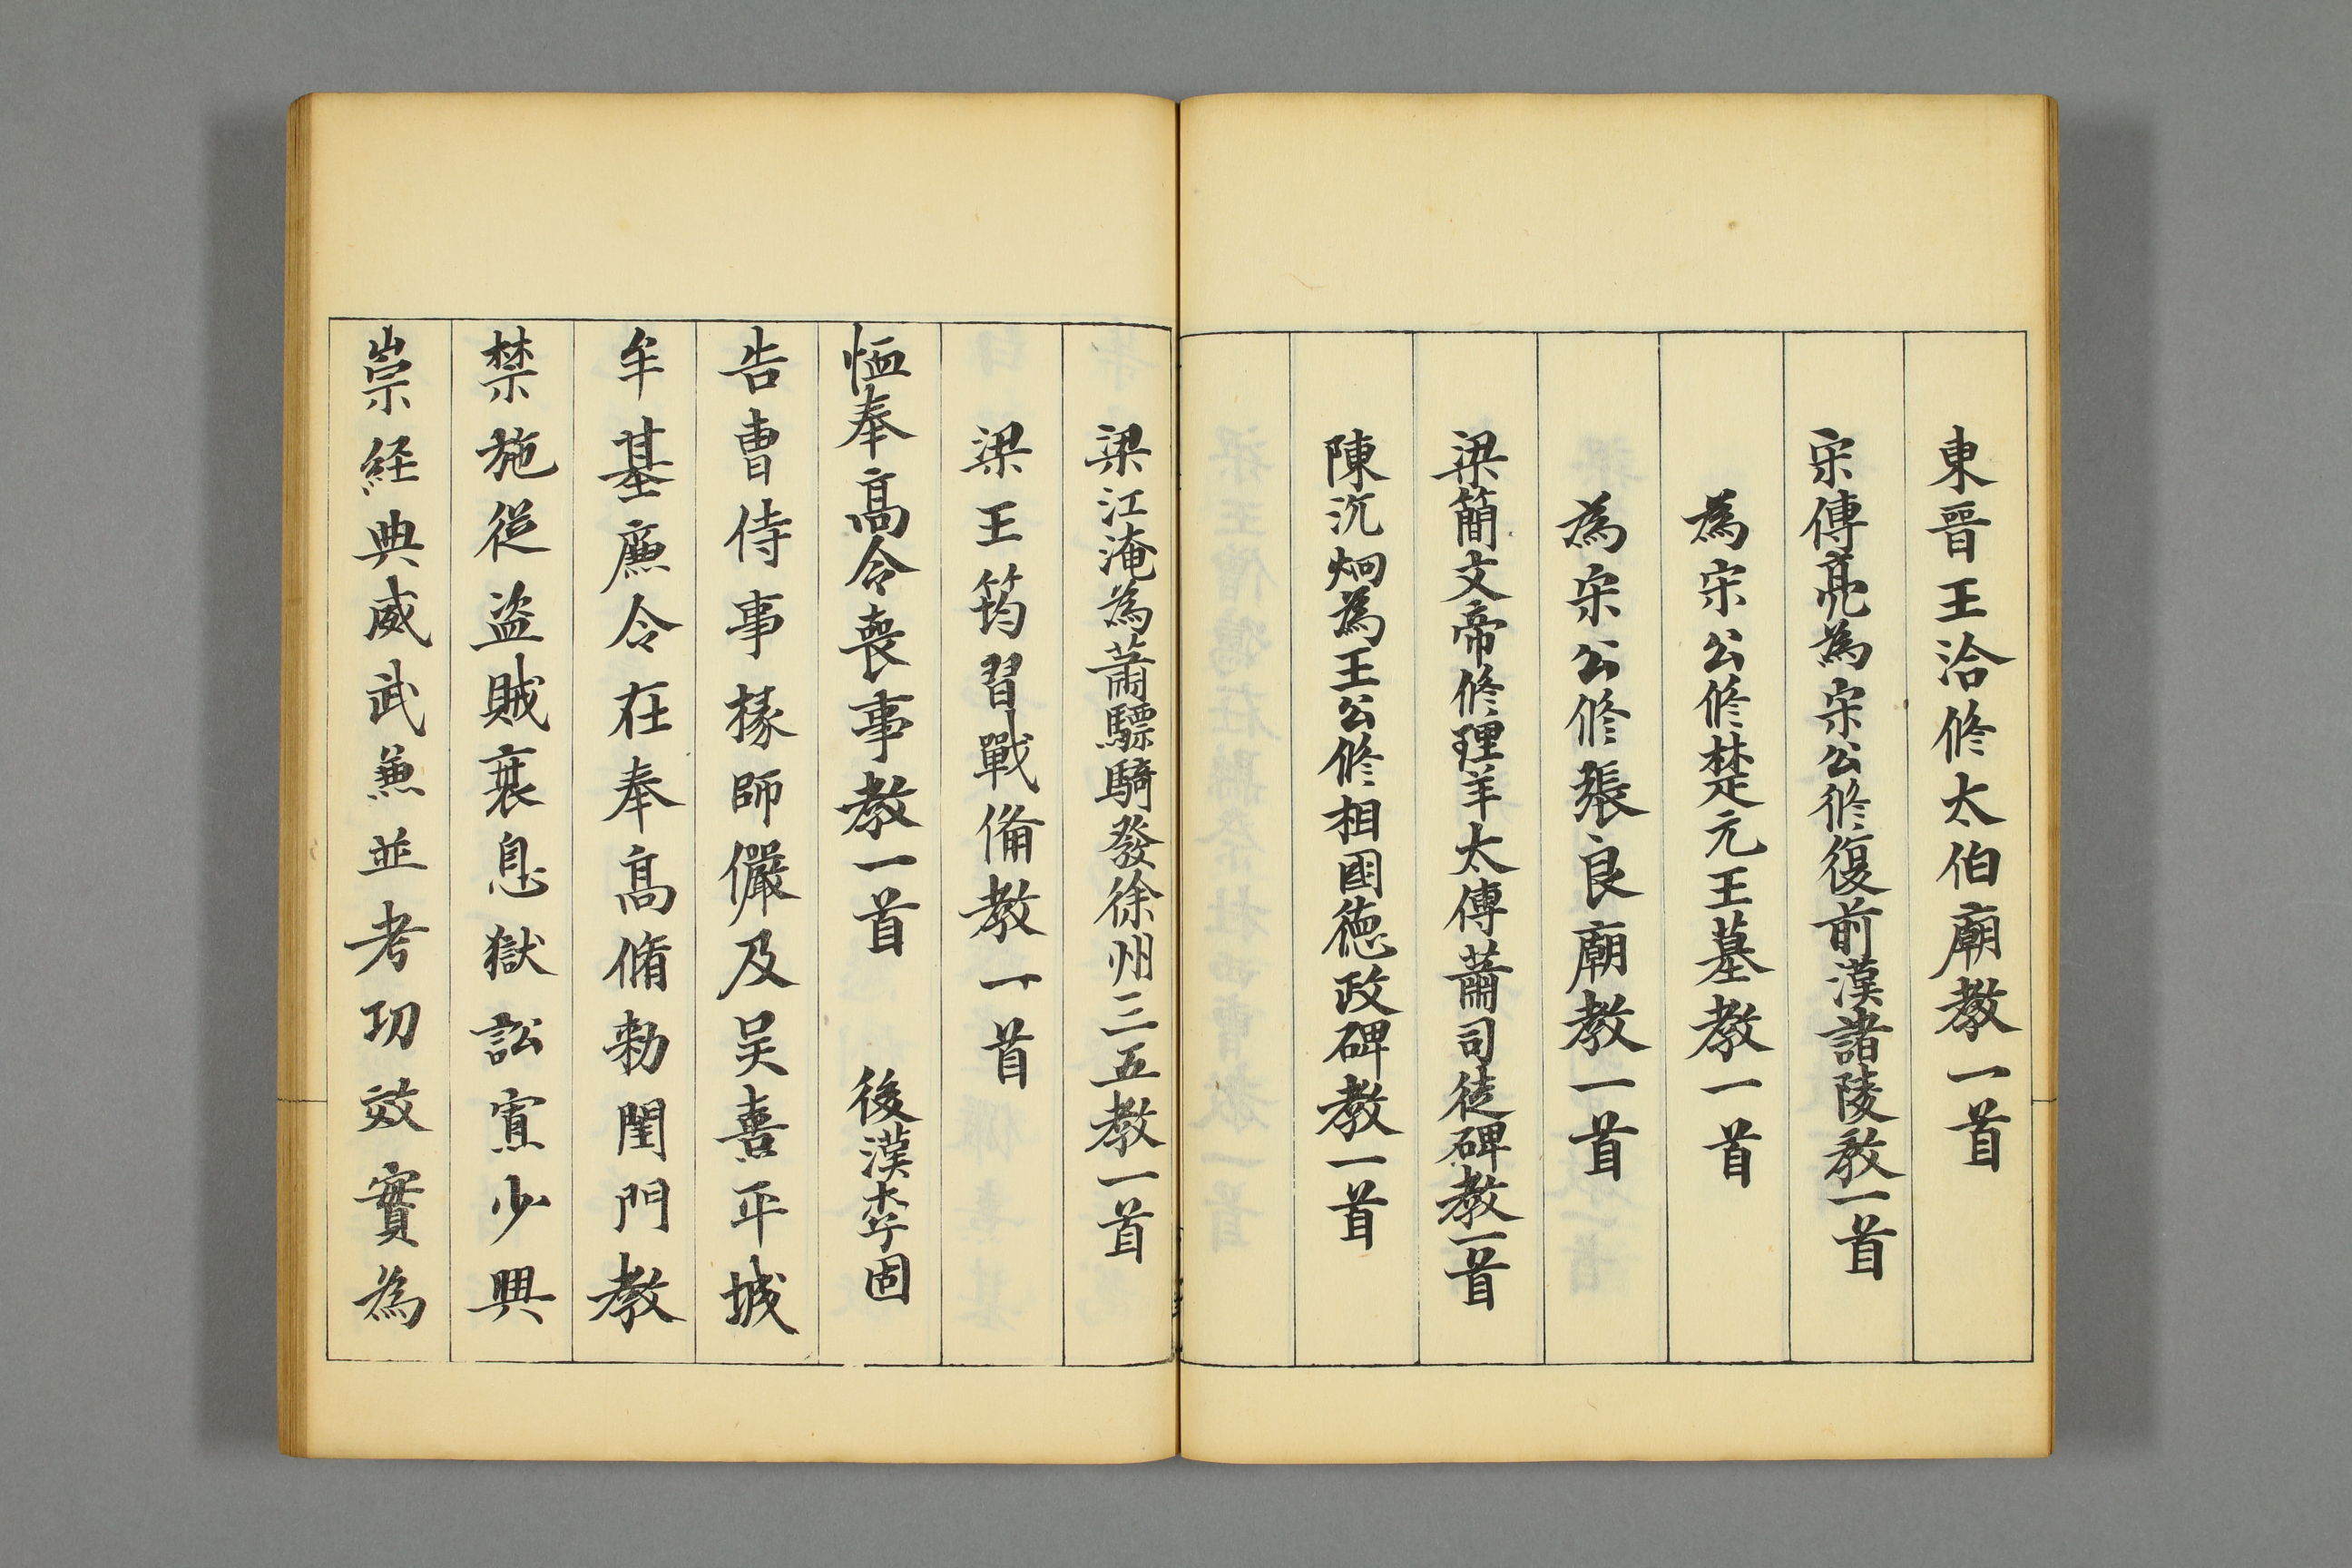 東晉王洽修太伯廟教一首
宋傅亮為宋公修復前漢諸陵教一首
為宋公修楚元王墓教一首
為宋公修張良廟教一首
梁簡文帝修理羊太傅蕭司徒碑教一首
陳沉炯為王公修相國德政碑教一首
梁江淹為蕭驃騎發徐州三五教一首
梁王筠習戰備教一首
恤奉高令喪事教一首 後漢李固
告曹侍事掾師儼及吴喜平城
牟基廉令在奉高脩勑閨門教
禁施從盗賊衰息獄訟寘少興
崇經典威武兼並考功效實為